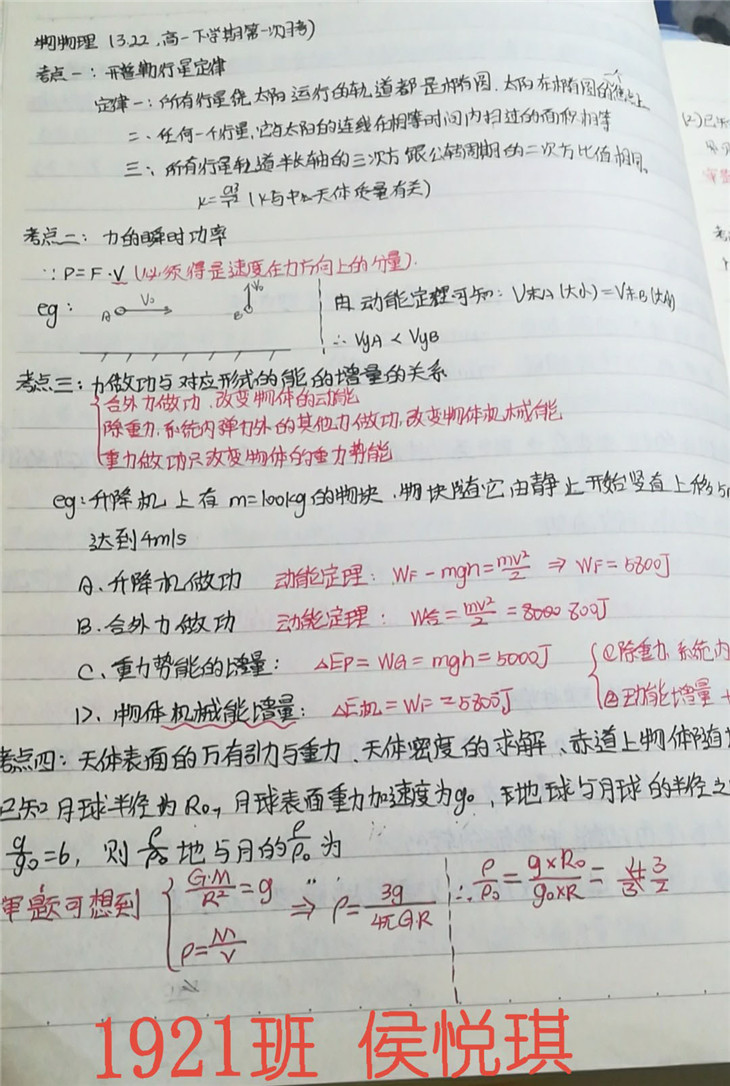 物理 (3.22, 高一下学期第一次月考)
考点一: 开普勒行星定律
定律一: 所有行星绕太阳运行的轨道都是椭圆, 太阳在椭圆的一个焦点上
二、任何一个行星, 它与太阳的连线在相等时间内扫过的面积相等
三、所有行星轨道半长轴的三次方跟公转周期的二次方比值相同。
K=a³/T² (K与中心天体质量有关)
考点二: 力的瞬时功率
∵P=F·V (V必须得是速度在力方向上的分量).
eg: A V₀ B V₀ 由动能定理可知: V末A(大小)=V末B(大小)
∴ VyA < VyB
考点三: 力做功与对应形式的能的增量的关系
合外力做功, 改变物体的动能
除重力、系统内弹力外的其他力做功, 改变物体机械能
重力做功只改变物体的重力势能
eg: 升降机上有m=100kg的物块, 物块随它由静止开始竖直上移5m
达到4m/s
A. 升降机做功 动能定理: WF-mgh=mv²/2 ⇒ WF=5800J
B. 合外力做功 动能定理: W合=mv²/2=800J
C. 重力势能的增量: △EP=WG=mgh=5000J ①除重力、系统内
D. 物体机械能增量: △E机=WF=5800J ②动能增量+
考点四: 天体表面的万有引力与重力、天体密度的求解、赤道上物体随
已知月球半径为R₀, 月球表面重力加速度为g₀, 地球与月球的半径之
g/g₀=6, 则地与月的ρ/ρ₀为
审题可想到 G·M/R²=g ⇒ ρ=3g/4πG·R ∴ρ/ρ₀=g×R₀/g₀×R=3/2
ρ=M/V
(2)已知
1921班 侯悦琪